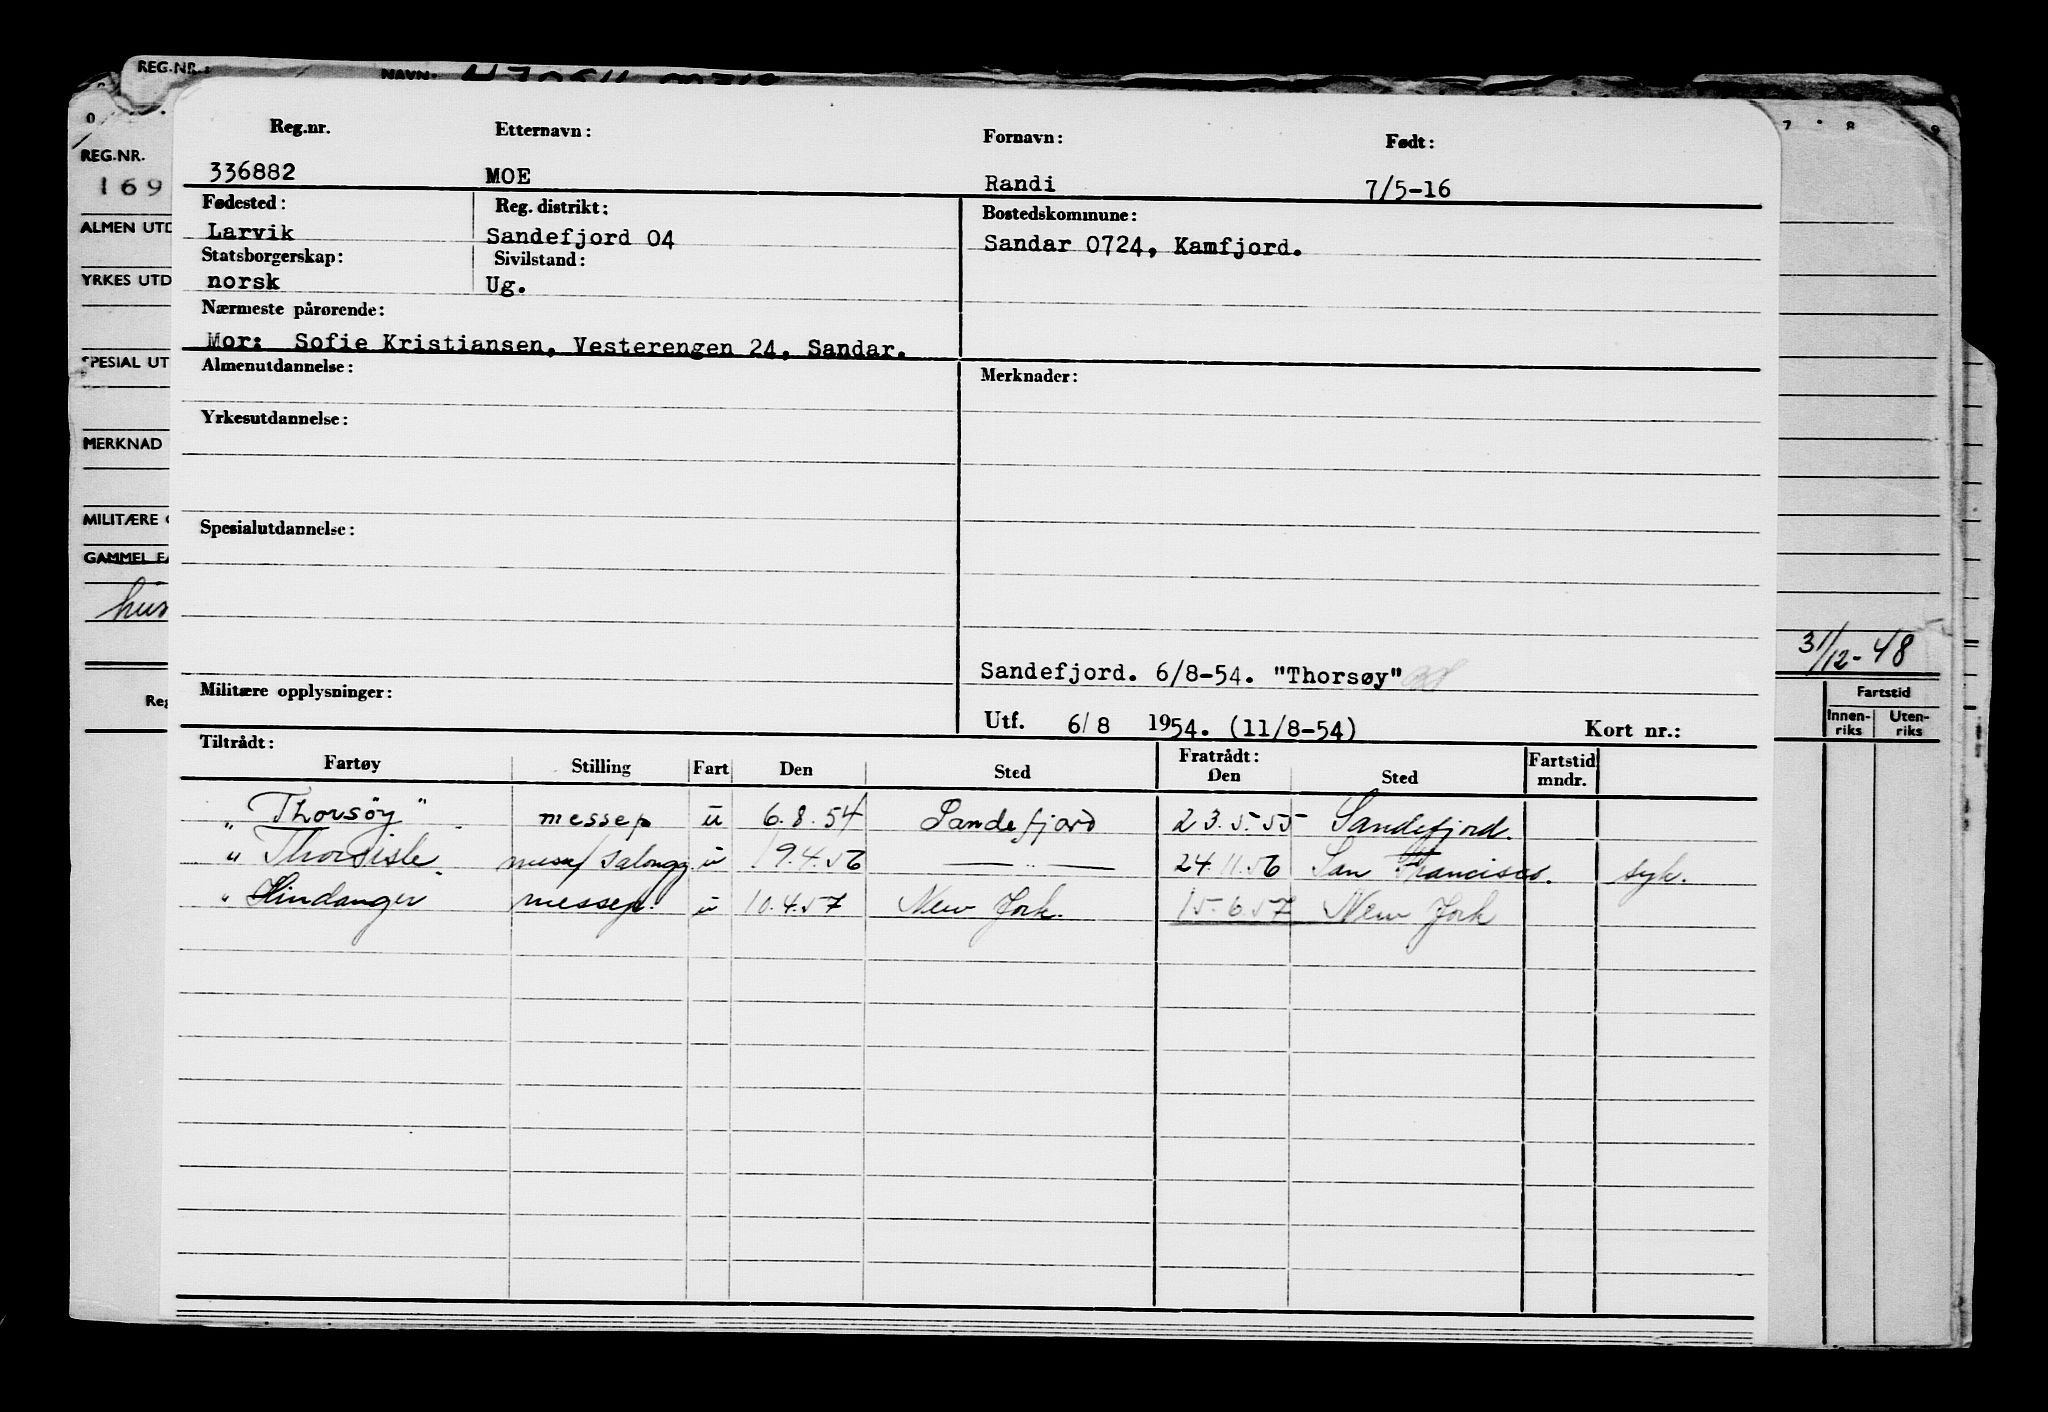 REG.NR.: NAVN:
0 7 8 9
REG.NR.
169
ALMEN UTD
YRKES UTD
SPESIAL UT
MERKNAD
MILITÆRE
GAMMEL FA
31/12-48
Reg
Fartstid
Innen-riks Uten-riks
Reg.nr. Etternavn: Fornavn: Født:
336882 MOE Randi 7/5-16
Fødested: Reg. distrikt: Bostedskommune:
Larvik Sandefjord 04 Sandar 0724, Kamfjord.
Statsborgerskap: Sivilstand:
norsk Ug.
Nærmeste pårørende:
Mor: Sofie Kristiansen, Vesterengen 24, Sandar.
Almenutdannelse: Merknader:
Yrkesutdannelse:
Spesialutdannelse:
Sandefjord. 6/8-54. "Thorsøy"
Militære opplysninger:
Utf. 6/8 1954. (11/8-54) Kort nr.:
Tiltrådt: Fratrådt:
Fartøy Stilling Fart Den Sted Den Sted Fartstid mndr.
"Thorsöy" messep u 6.8.54 Sandefjord 23.5.55 Sandefjord.
" Thorsisle messp/salongp u 19.4.56 — " — 24.11.56 San Francisco. syk.
" Hindanger messep. u 10.4.57 New York. 15.6.57 New York